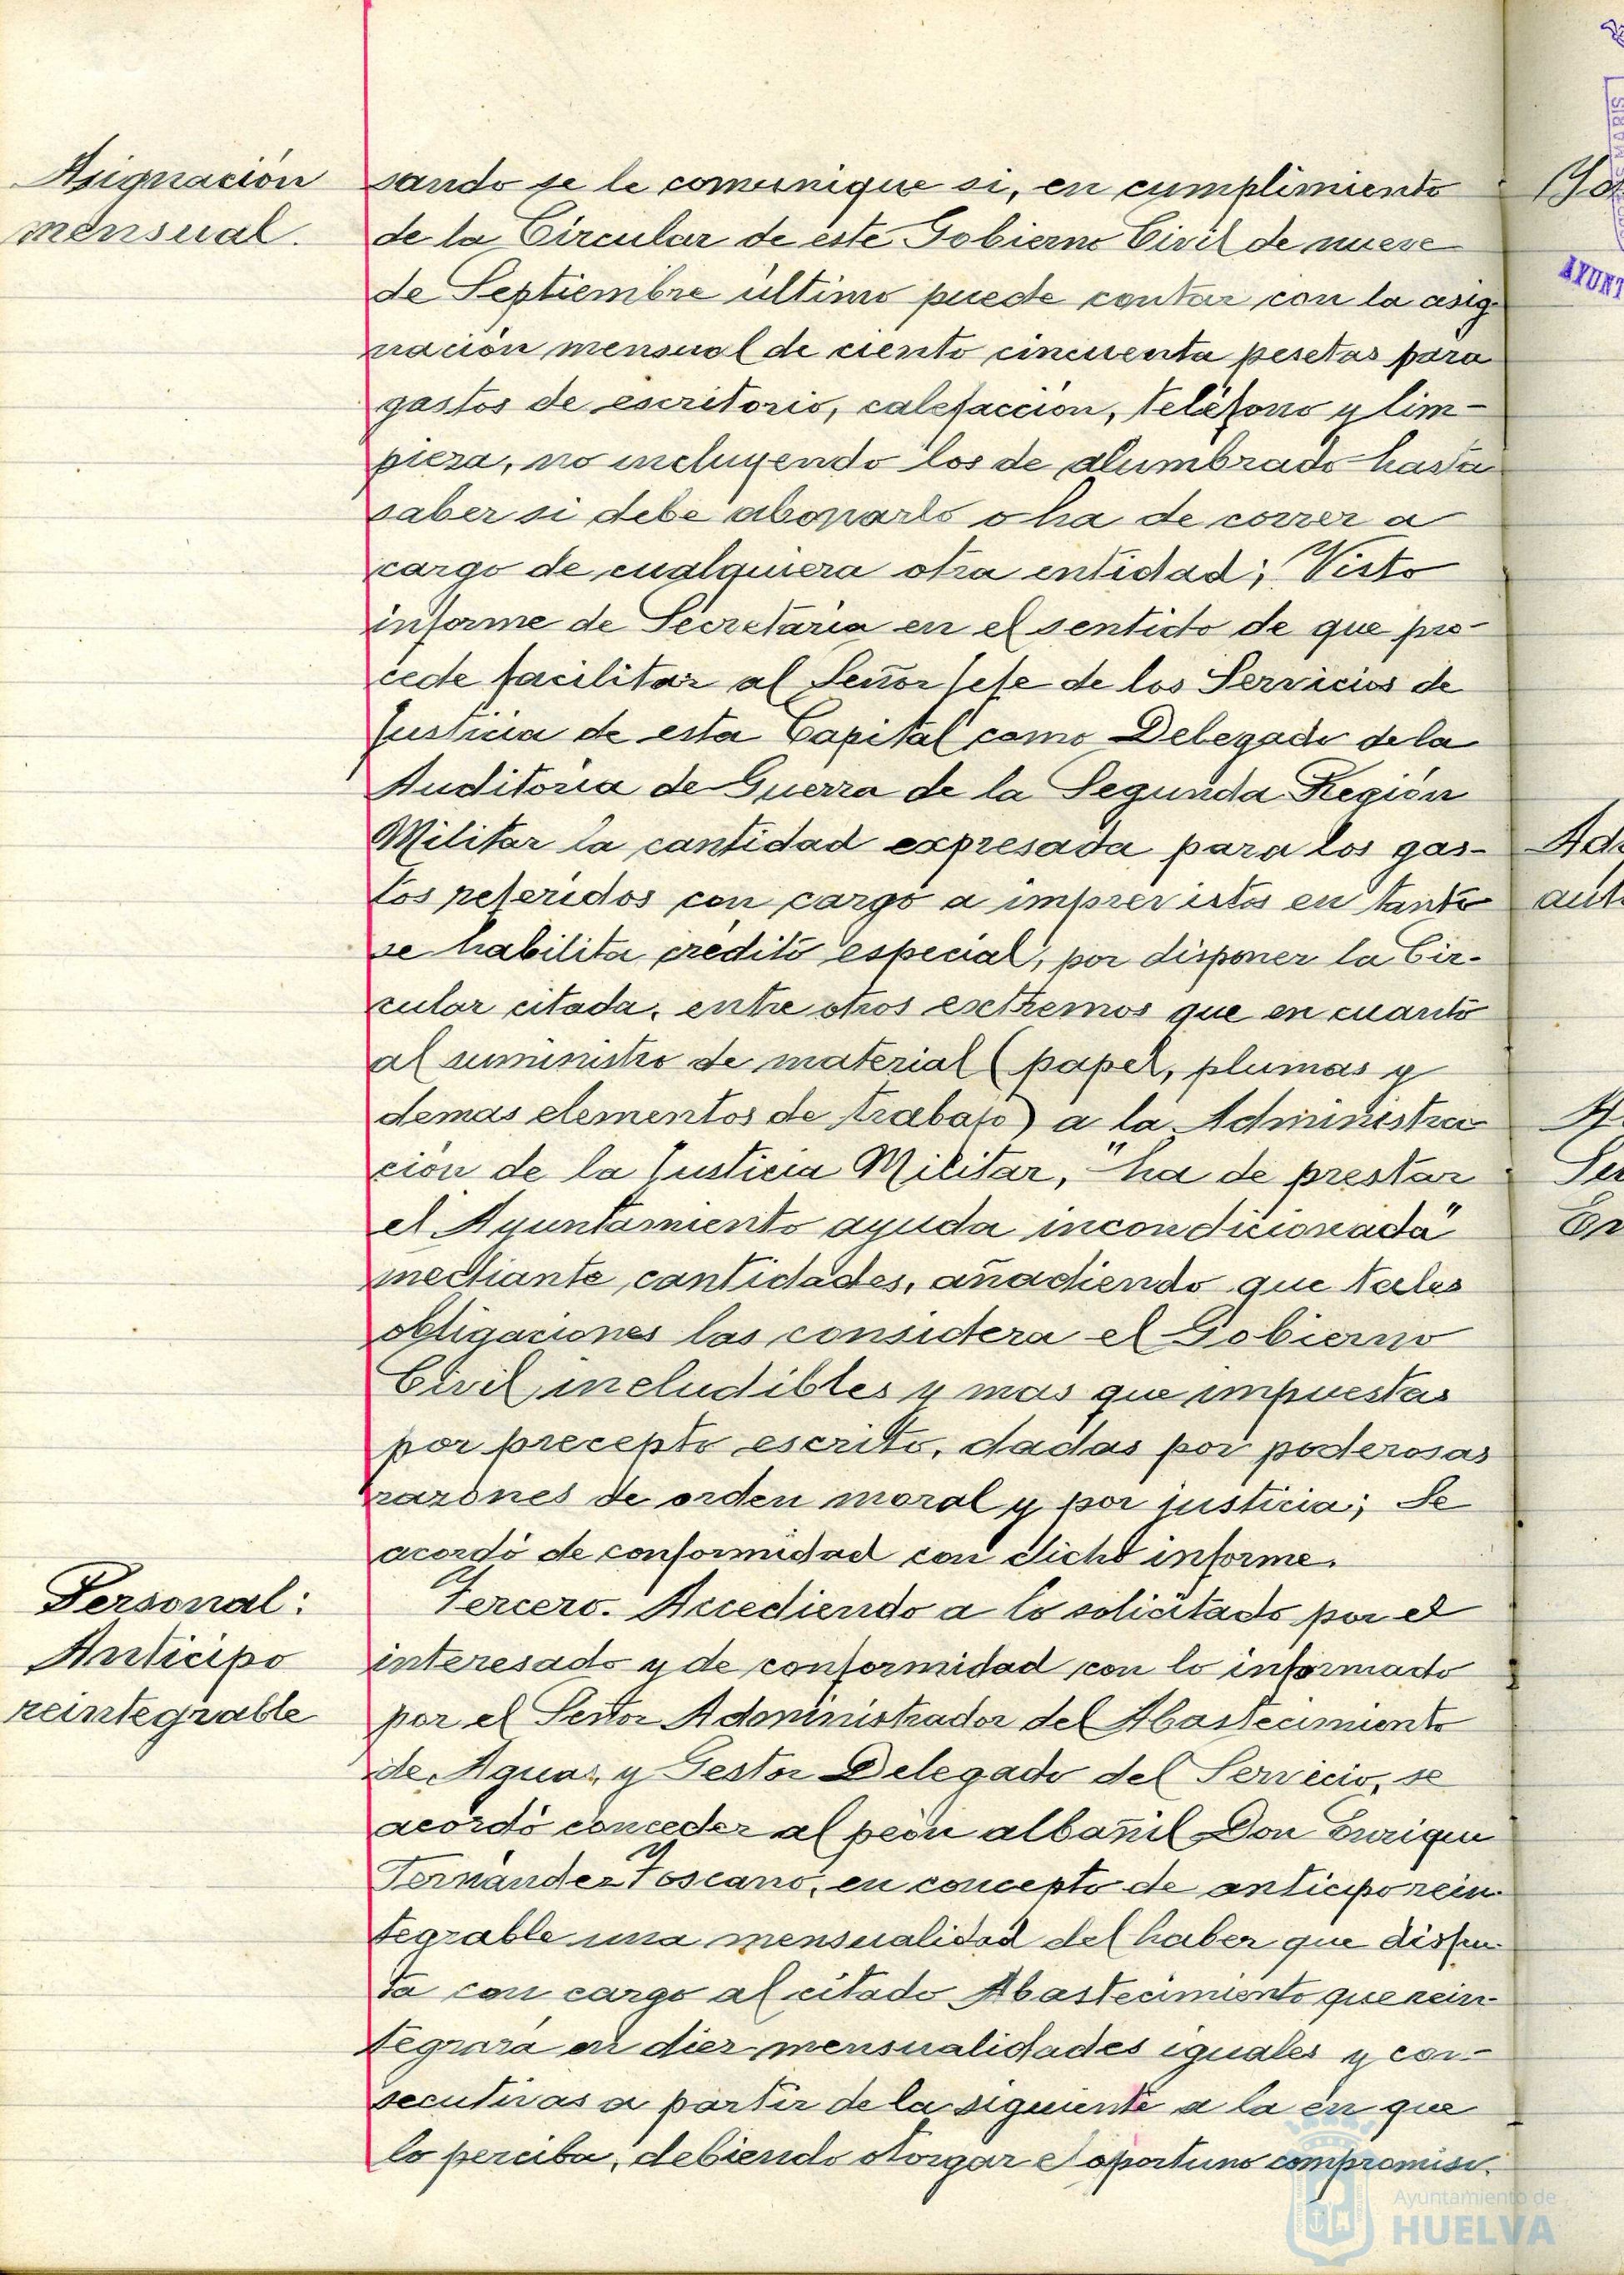 Asignación
mensual.
sando se le comunique si, en cumplimiento
de la Circular de éste Gobierno Civil de nueve
de Septiembre último puede contar con la asig-
nación mensual de ciento cincuenta pesetas para
gastos de escritorio, calefacción, teléfono y lim-
pieza, no incluyendo los de alumbrado hasta
saber si debe abonarlo o ha de correr a
cargo de cualquiera otra entidad; Visto
informe de Secretaría en el sentido de que pro-
cede facilitar al Señor Jefe de los Servicios de
Justicia de esta Capital como Delegado de la
Auditoría de Guerra de la Segunda Región
Militar la cantidad expresada para los gas-
tos referidos con cargo a imprevistos en tanto
se habilita crédito especial, por disponer la Cir-
cular citada, entre otros extremos que en cuanto
al suministro de material (papel, plumas y
demas elementos de trabajo) a la Administra
ción de la Justicia Militar, "ha de prestar
el Ayuntamiento ayuda incondicionada"
mediante cantidades, añadiendo que tales
obligaciones las considera el Gobierno
Civil includibles y mas que impuestas
por precepto escrito, dadas por poderosas
razones de orden moral y por justicia; Se
acordó de conformidad con dicho informe.
Personal:
Anticipo
reintegrable
Tercero. Accediendo a lo solicitado por el
interesado y de conformidad con lo informado
por el Señor Administrador del Abastecimiento
de Aguas, y Gestor Delegado del Servicio, se
acordó conceder al peón albañil Don Enrique
Fernández Toscano, en concepto de anticipo rein-
tegrable una mensualidad del haber que disfru-
ta con cargo al citado Abastecimiento que rein-
tegrará en diez mensualidades iguales y con-
secutivas a partir de la siguiente a la en que
lo perciba, debiendo otorgar el oportuno compromiso.
Ayuntamiento de
HUELVA